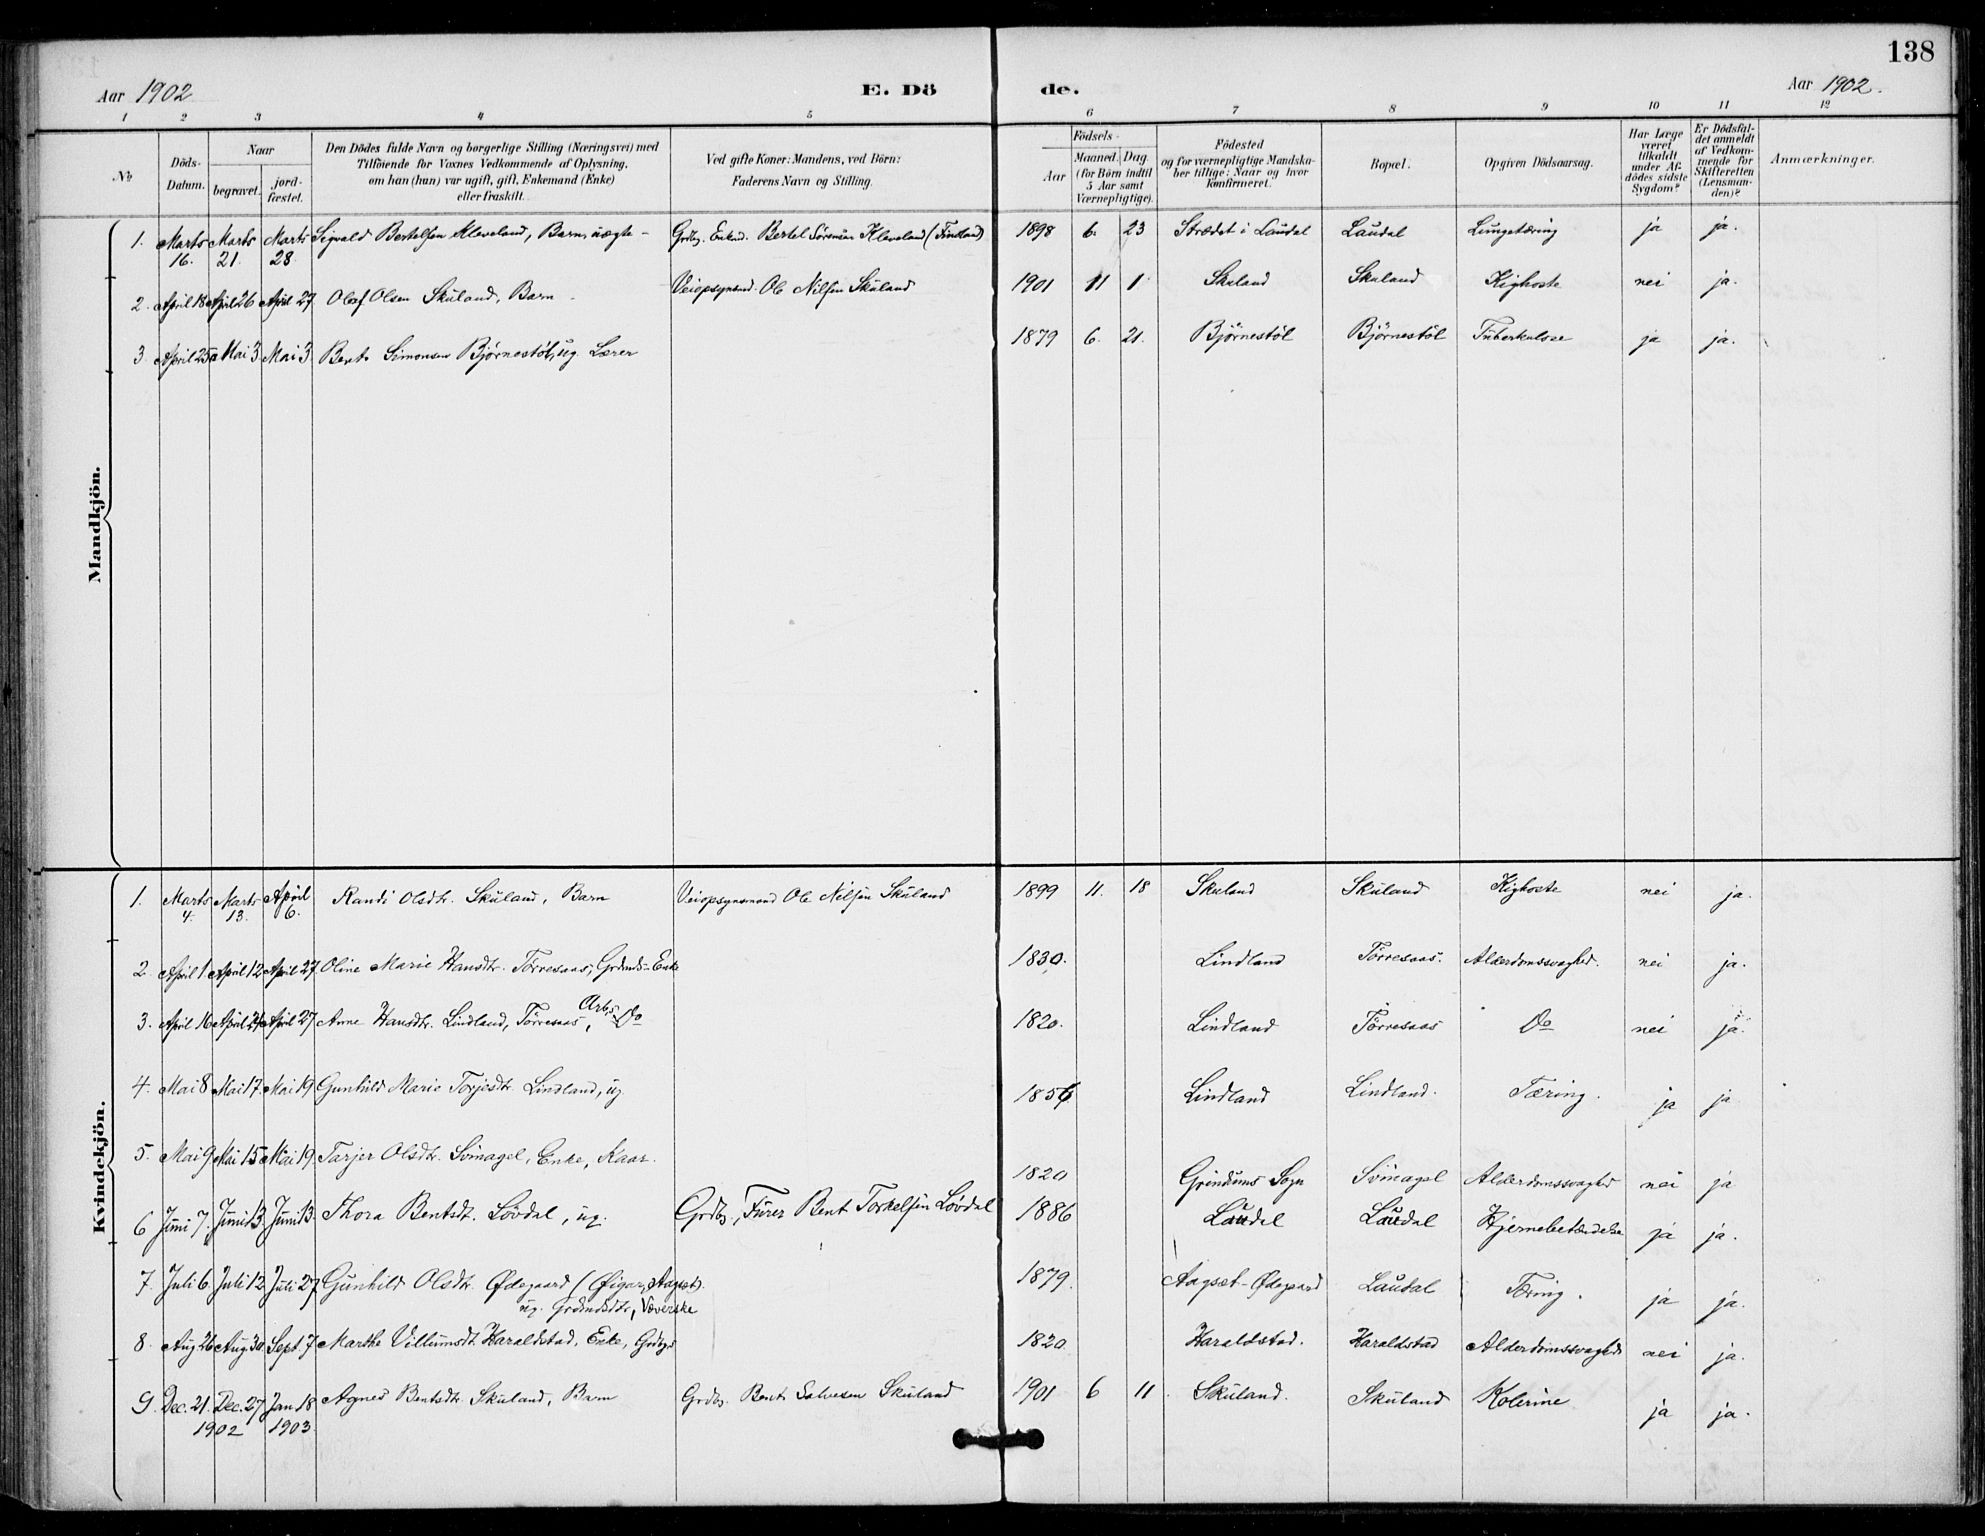 138
Aar 1902 E. Dö de. Aar 1902.
1 2 3 4 5 6 7 8 9 10 11 12
№
Döds-Datum.
Naar
begravet.
jord-fæstet.
Den Dödes fulde Navn og borgerlige Stilling (Næringsvei) med
Tilföiende for Voxnes Vedkommende af Oplysning,
om han (hun) var ugift, gift, Enkemand (Enke)
eller fraskilt.
Ved gifte Koner: Mandens, ved Börn:
Faderens Navn og Stilling.
Födsels-
Aar
Maaned. Dag
(for Börn indtil
5 Aar samt
Værnepligtige).
Födested
og for værnepligtige Mandska-
ber tillige: Naar og hvor
konfirmeret.
Bopæl.
Opgiven Dödsaarsag.
Har Læge
været
tilkaldt
under Af-
dödes sidste
Sygdom?
Er Dödsfal-
det anmeldt
af Vedkom-
mende for
Skifteretten
(Lensman-
den)?
Anmærkninger.
Mandkjön.
1. Marts 16. Marts 21. Marts 28. Sigvald Bertelsen Kleveland, Barn, uægte - Grdbr. Enkem. Bertel Sörensen Kleveland (Finsland) 1898 6. 23 Strædet i Laudal Laudal Lungetæring ja ja.
2. April 18 April 26 April 27 Olaf Olsen Skuland, Barn - Veiopsynsmd. Ole Nilsen Skuland 1901 11 1 Skuland Skuland Kighoste nei ja.
3. April 25 Mai 3 Mai 3. Bent Simonsen Bjørnestøl, ug. Lærer 1879 6. 21. Bjørnestöl Björnestöl Tuberkulose ja ja.
Kvindekjön.
1. Marts 4. Marts 13. April 6. Randi Olsdtr. Skuland, Barn Veiopsynsmand Ole Nilsen Skuland 1899 11. 18 Skuland Skuland Kighoste nei ja.
2. April 1 April 12 April 27 Oline Marie Hansdtr. Tørresaas, Grdmds-Enke 1830. Lindland Tørresaas. Alderdomssvaghed. nei ja.
3. April 16 April 24 April 27 Anne Hansdtr. Lindland, Tørresaas, Arb.s Do 1820. Lindland Tørresaas Do nei ja.
4. Mai 8 Mai 17. Mai 19 Gunhild Marie Torjesdtr. Lindland, ug. 1856 Lindland Lindland. Tæring. ja ja
5. Mai 9 Mai 15 Mai 19. Tarjer Olsdtr. Svinagel, Enke, Kaar. 1820 Grindums Sogn Svinagel Alderdomssvaghed nei ja
6 Juni 7. Juni 13 Juni 13. Thora Bentsdt. Løvdal, ug. Grdbr., Furer Bent Torkelsen Løvdal 1886 Laudal Laudal Hjernebetændelse ja ja.
7. Juli 6. Juli 12 Juli 27 Gunhild Olsdtr. Ødegaard (Øigar, Aagset).
ug. Grdmdsdtr, Væverske 1879. Aagset-Ødegaard Laudal Tæring. ja ja.
8. Aug 26 Aug. 30 Sept. 7 Marthe Villumsdt. Haraldstad, Enke, Grdbrs 1820. Haraldstad. Haraldstad Alderdomssvaghed nei ja.
9. Dec. 21. Dec. 27 Jan 18 Agnes Bentsdtr. Skuland, Barn Grdbr. Bent Salvesen Skuland 1901 6 11. Skuland. Skuland Kolerine ja ja.
1902 1903.